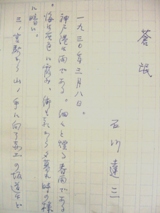 蒼氓
石川達三
一九三〇年三月八日。
神戸港は雨である。細々と煙る春雨である。
海は灰色に霞み、街も朝から夕暮れ時の様
に暗い。
三ノ宮駅から山ノ手に向う赤土の坂道は